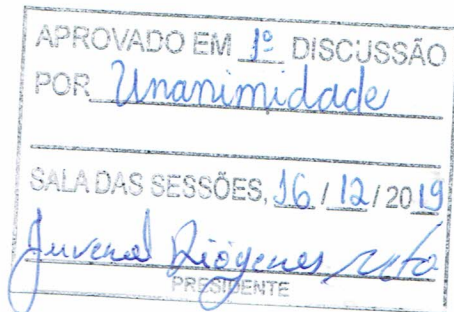 APROVADO EM 1º DISCUSSÃO
POR Unanimidade
SALA DAS SESSÕES, 16 / 12 / 2019
Juvenal Diógenes Neto
PRESIDENTE